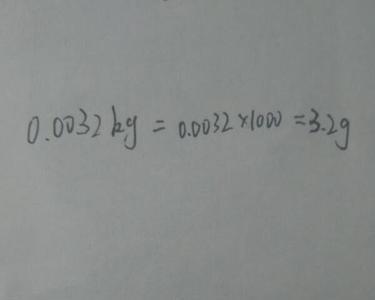 0.0032kg = 0.0032×1000 = 3.2g